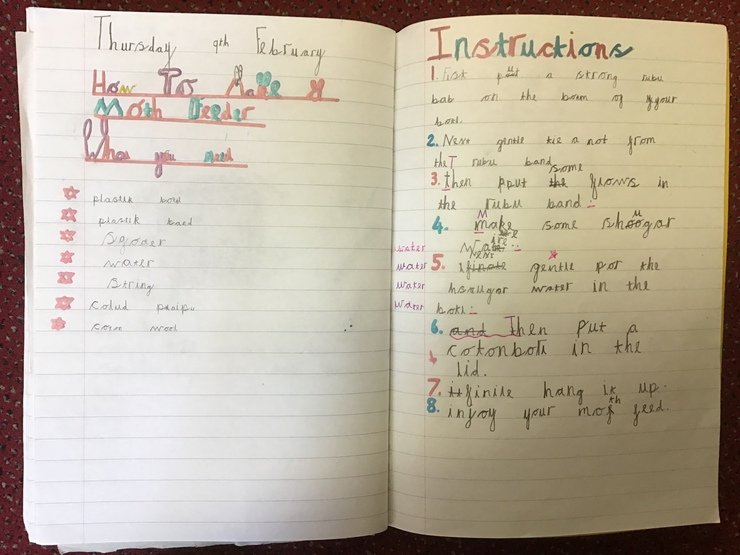 Thursday 9th February
How To Make a
Moth Feeder
What you need
plastik botl
plastik baed
Sgooer
water
String
colud paipu
coton wool
Instructions
1. Fist put a strong rubu
bab on the botm of yyour
botl.
2. Next gentle tie a not from
the rubu band
3. then pput the some flows in
the rubu band.
4. Make some shoogar
water
water
5. gentle por the
water
water
hsrugar water in the
water
botl.
6. and Then put a
cotonboll in the
lid.
7. finile hang it up.
8. injoy your moth feed.